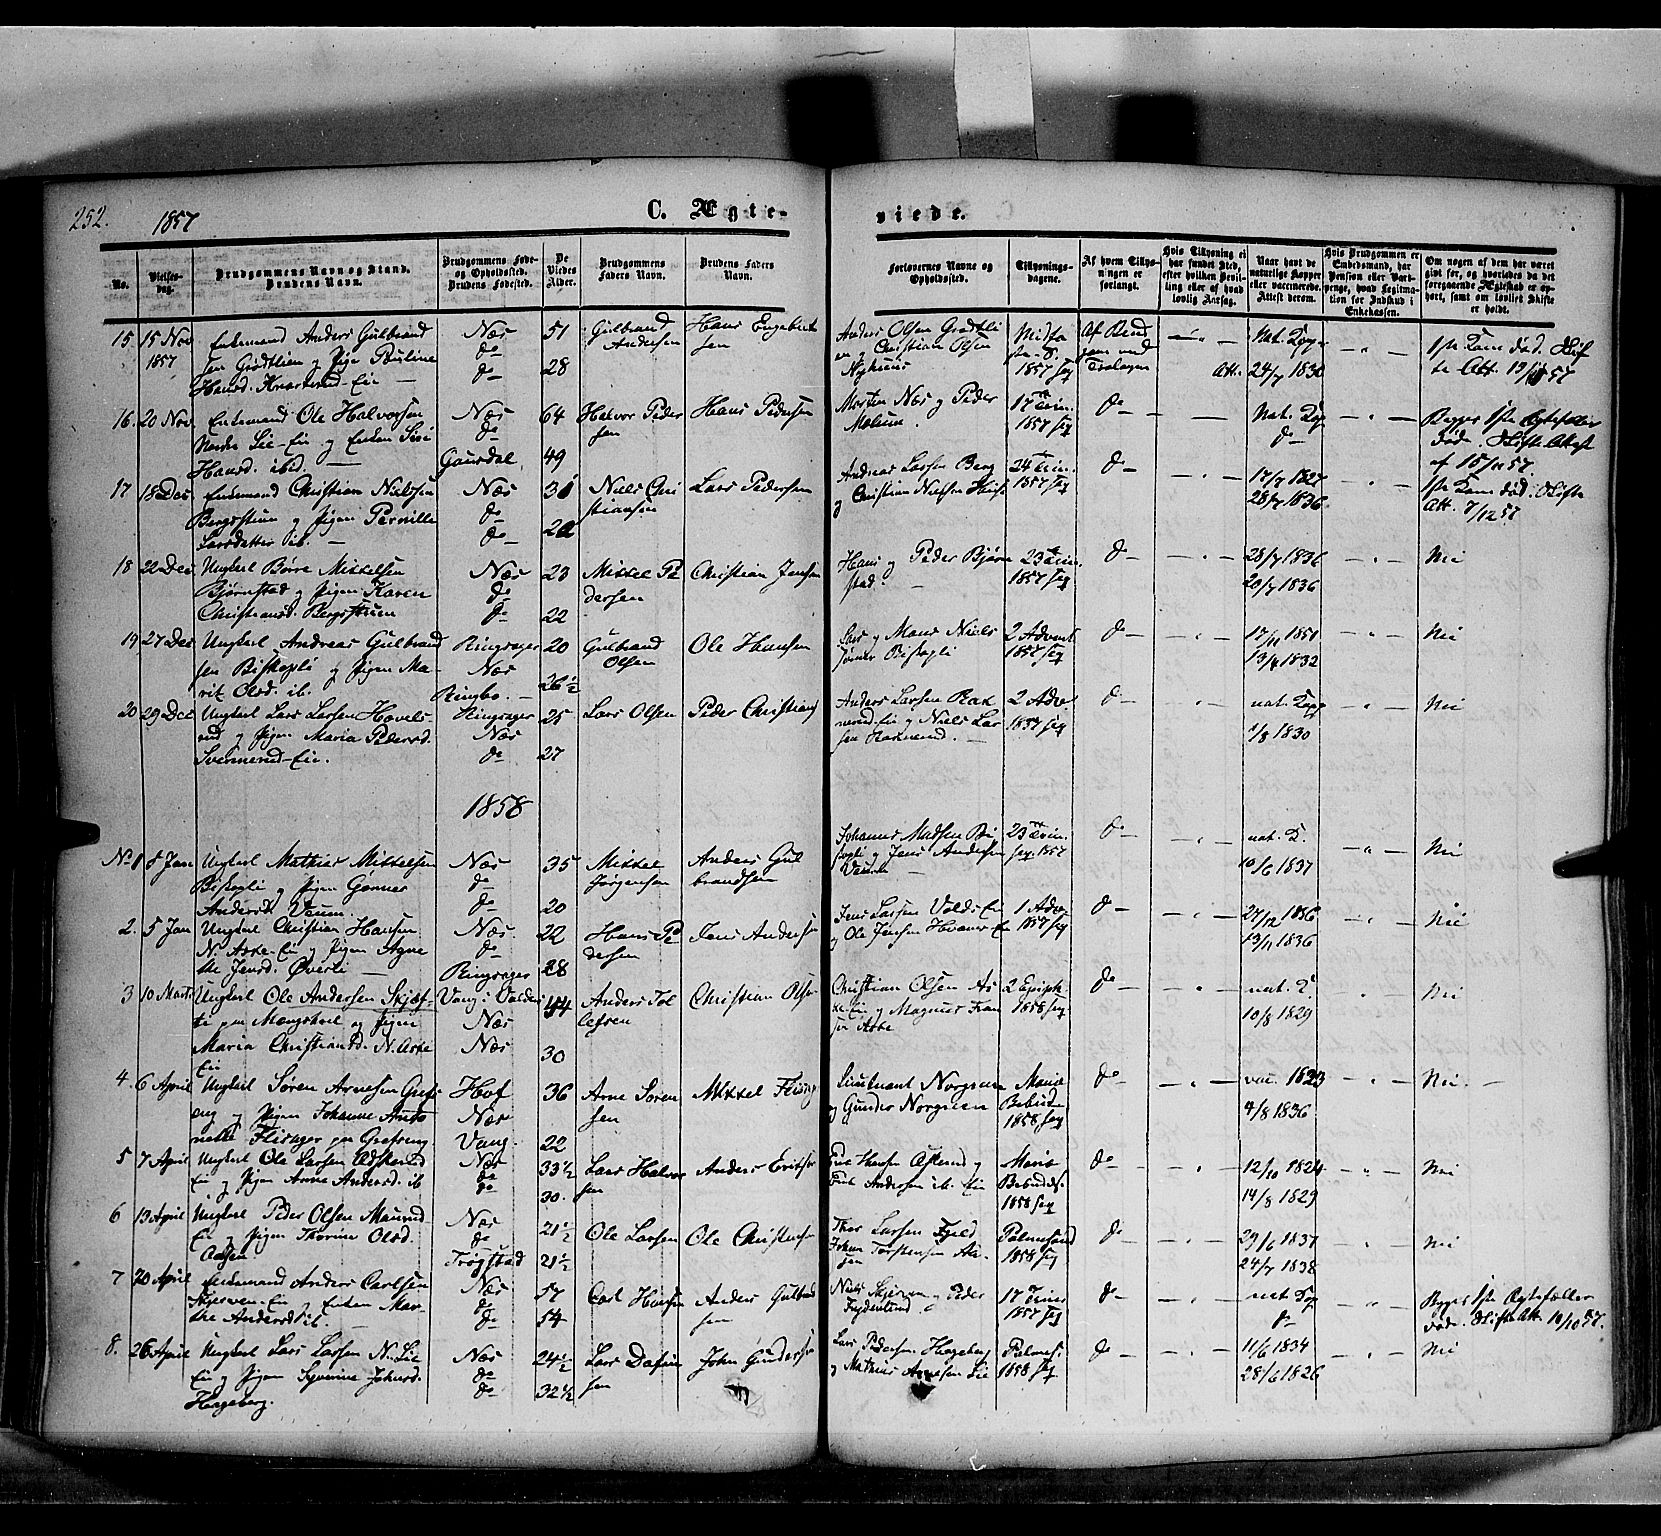 252.
1857
C. Ægte-
viede.
No.
Vielses-
dag.
Brudgommens Navn og Stand.
Brudens Navn.
Brudgommens Føde-
og Opholdssted.
Brudens Fødested.
De
Viedes
Alder.
Brudgommens
Faders Navn.
Brudens Faders
Navn.
Forlovernes Navne og
Opholdssted.
Tillysnings-
dagene.
Af hvem Tillys-
ningen er
forlangt.
Hvis Tillysning ei
har fundet Sted,
efter hvilken Bevil-
ling eller af hvad
lovlig Aarsag.
Naar havt de
naturlige Kopper
eller vaccinerede.
Attest derom.
Hvis Brudgommen er
Embedsmand, har
Pension eller Vart-
penge, hvad Legitima-
tion for Indskud i
Enkekassen.
Om nogen af dem har været
gift før, og hvorledes da det
foregaaende Ægteskab er op-
hørt, samt om lovligt Skifte
er holdt.
15. 15 Nov 1857
Enkemand Anders Gulbrand
sen Grødtlien og Pige Pauline
Hansd. Knarterud-Eie
Næs
do
do
51
28
Gulbrand
Andersen
Hans Engebret
sen
Anders Olsen Grøtli
og Christian Olsen
1857 seq
Nat. Kop.
Att. 24/7 1830
1ste Kone død. Skif
te Att. 19/11 57
16. 20 Nov
Enkemand Ole Halvorsen
Nordre Lie-Eie og Enken Siri
Hansd. ibid.
Næs
do
Gausdal
64
49
Halvor Peder
sen
Hans Pedersen
Morten Næs og Peder
Moleun.
17 Trin.
1857 seq
do
nat. Kop
do
Begges 1ste Ægtefæller
døde. Skifte Attest
af 15/11 57.
17 18 Dec
Enkemand Christian Nielsen
Bergsteun og Pigen Pernille
Larsdatter ib.
Næs
do
do
30
20
Niels Chri
stiansen
Lars Pedersen
Andreas Larsen Berg
og Christian Nielsen
24 Trin.
1857 seq
do
17/7 1827
28/7 1836
1ste Kone død. Skifte
Att. 7/12 57
18 22 Dec
Ungkarl Børre Mikkelsen
Bjørnstad og Pigen Karen
Christiansd. Bergsteun
Næs
do
do
23
22
Mikkel Pe
dersen
Christian Jensen
Hans og Peder Bjørn
stad.
23 Trin.
1857 seq
do
28/7 1836
20/7 1836
Nei
19 27 Dec
Ungkarl Andreas Gulbrand
sen Biskopli og Pigen Ma-
rit Olsd. ib.
Ringsager
Næs
Ringbo.
20
26 1/2
Gulbrand
Olsen
Ole Hansen
Lars og Mons Niels
sønner Biskopli
2 Advent
1857 seq
do
17/11 1851
13/4 1832
Nei
20 29 Dec
Ungkarl Lars Larsen Hovels
rud og Pigen Maria Pedersd.
Svennerud-Eie.
Ringsager
Næs
do
25
27
Lars Olsen
Peder Christians
Anders Larsen
nerud-Eie og Niels Lar
sen
2 Adve
1857 seq
do
nat. Kop
1/8 1830
Nei
1858
No 1 5 Jan
Ungkarl Mathias Mikkelsen
Biskopli og Pigen Gønner
Andersd. Veum.
Næs
do
do
35
20
Mikkel
Jørgensen
Anders Gul
brandsen
Johannes Madsen Bi
skopli og Jens Andersen
Veum
23 Trin.
seq 1857
do
nat. K.
10/6 1837
Nei
2. 5 Jan
Ungkarl Christian Hansen
N. Aske-Eie og Pigen Agne
the Jensd. Øverli
Næs
do
Ringsager
22
28
Hans Pe
dersen
Jens Andersen
Jens Larsen Volds-Eie
og Ole Jensen
1 Adve
1857 seq
do
27/12 1836
13/11 1836
Nei
3 10 Marts
Ungkarl Ole Andersen Skjæf-
te paa Mengshoel og Pigen
Maria Christiansd. N. Aske
Eie
Vang i Valders
Næs
Næs
44
30
Anders Tol
lefsen
Christian Olsen
Christian Olsen As
ke-Eie og Magnus Fran
sen Aske
2 Epiph.
1858 seq
do
nat. K.
10/8 1829
Nei
4. 6 April
Ungkarl Søren Arnesen Grefs
eng og Pigen Johanne Anto
nette Flisager paa Grefseng
Hof
Næs
Vang.
36
22
Arne Søren
sen
Mikkel Flisag
Lieutnant Norgreen
og Gunder Norgreen
Mariæ
Bebud
1858 seq
do
vac. 1823
4/8 1836
Nei.
5 7 April
Ungkarl Ole Larsen Askerud
Eie og Pigen Anne Andersd. ib
Næs
do
do
33 1/2
30.
Lars Halvor
sen
Anders Eriksen
Erik Hansen Askerud og
Erik Andersen ib. Eie
Mariæ
Bebudels.
1858 seq
do
12/10 1824
14/8 1829
Nei
6 13 April
Ungkarl Peder Olsen Maurud
Eie og Pigen Thorine Olsd.
Aasen
Næs
do
Trøgstad
21 1/2
21 1/2
Ole Larsen
Ole Christensen
Thor Larsen Fjeld
Johan Torstensen Aa-
sen
Palmesønd
1858 seq
do
29/6 1837
24/7 1838
Nei
7 20 April
Enkemand Anders Carlsen
Skjesven-Eie og Enken Mar-
the Andersd. ib.
Næs
do
do
57
54
Carl Hansen
Anders Gulbrand
sen
Niels Skjesven og Peder
Frydenlund
17 Trin
1857 seq
do
nat. Kop
do
Begges 1ste Ægtefæller
døde. Skifte Att. 10/10 57.
8. 26 April
Ungkarl Lars Larsen N. Lie
Eie og Pigen Syverine Johnsd.
Hageberg.
Næs
do
do
24 1/2
32 1/2
Lars Dafin
sen
John Gunderse
Lars Pedersen Hageberg
og Mathias Arnesen Lie
Palmes.
1858 seq
do
11/6 1834
28/6 1826
Nei